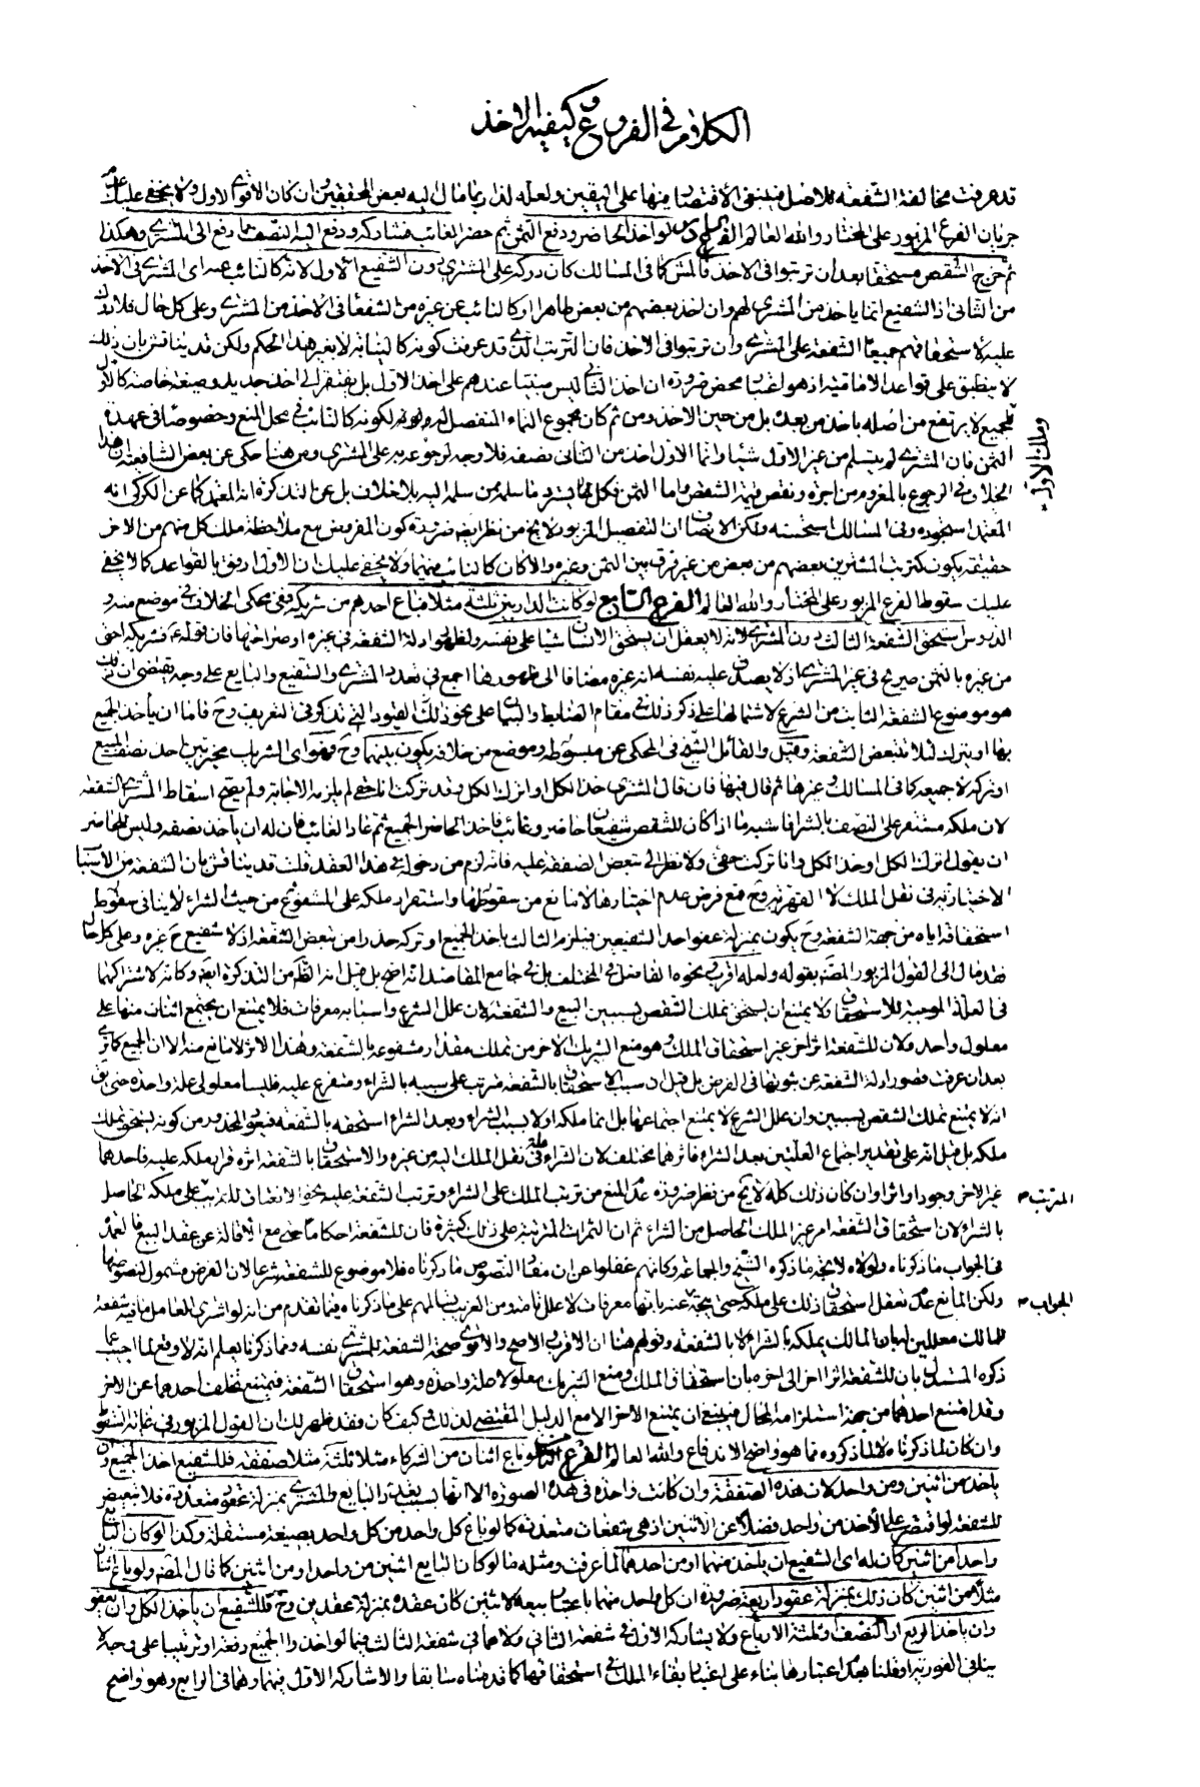 الكلام في الفروع و كيفية الاخذ
قد عرفت مخالفة الشفعة للاصل فينبغى الاقتصار فيها على اليقين ولعله لذا ربما مال اليه بعض المحققين وان كان الاقوى الاول ولا يخفى عليك
جريان الفرع المزبور على المختار والله العالم الفرع السادس لو اخذ الحاضر ودفع الثمن ثم حضر الغائب فشاركه ودفع اليه النصف مما دفع الى المشترى وهكذا
ثم خرج الشقص مستحقا بعد ان ترتبوا فى الاخذ كما فى المسالك كان دركه على المشترى دون الشفيع الاول لانه كالنائب عنه اى المشترى فى الاخذ
من الثانى اذ الشفيع انما ياخذ من المشترى لهم وان اخذ بعضهم من بعض ظاهرا وكالنائب عن غيره من الشفعاء فى الاخذ من المشترى وعلى كل حال فلا درك
عليه لاستحقاقهم جميعا الشفعة على المشترى وان ترتبوا فى الاخذ فان الترتب الذى قد عرفت كونه كالنيابة لا يغير هذا الحكم ولكن قد يناقش بان ذلك
لا ينطبق على قواعد الامامية اذ هو اعتبار محض ضرورة ان اخذ الثانى ليس مبنيا عندهم على اخذ الاول بل يفتقر الى اخذ جديد وصيغة خاصة كالاول
للجميع لا يرتفع من اصله باخذ من بعده بل من حين الاخذ ومن ثم كان مجموع النماء المنفصل له ولو انه لكونه كالنائب فى محل المنع وخصوصا فى عهدة
الثمن فان المشترى لم يتسلم من غير الاول شيئا وانما الاول اخذ من الثانى نصفه فلا وجه لرجوعه به على المشترى ومن هنا حكى عن بعض الشافعية ان هذا
الخلاف فى الرجوع بالمغروم من اجرة ونقص قيمة الشقص واما الثمن فكل يسترد ما سلمه ممن سلمه اليه بلا خلاف بل عن التذكرة انه المعتمد كما عن الكركى انه
المعتمد استجوده وفى المسالك استحسنه ولكن الانصاف ان التفصيل المزبور لا يخ من نظر ايضا ضرورة كون المفروض مع ملاحظة ملك كل منهم من الاخر
حقيقة يكون كترتب المشترين بعضهم من بعض من غير فرق بين الثمن وغيره والا كان كالنائب فيهما ولا يخفى عليك ان الاول اوفق بالقواعد كما لا يخفى
عليك سقوط الفرع المزبور على المختار والله العالم الفرع السابع لو كانت الدار بين ثلثة مثلا فباع احدهم من شريكه ففى محكى الخلاف فى موضع منه و
الدروس استحق الشفعة الثالث دون المشترى لانه لا يعقل ان يستحق الانسان شيئا على نفسه ولظهور ادلة الشفعة فى غيره او صراحتها فان قوله ع فشريكه احق
من غيره بالثمن صريح فى غير المشترى اذ لا يصدق عليه نفسه انه غيره مضافا الى ظهورها اجمع فى تعدد المشترى والشفيع والبايع على وجه يقتضى ان ذلك
هو موضوع الشفعة الثابت من الشرع لاشتمالها على ذكر ذلك فى مقام الضابط والبناء على نحو ذلك القيود التى تذكر فى التعريف وح فاما ان يأخذ الجميع
بها او يترك لئلا تتبعض الشفعة وقيل والقائل الشيخ فى المحكى عن مبسوطه وموضع من خلافه يكون بينهما وح فهو اى الشريك مخير بين اخذ نصف المبيع
او تركه لا جميعه كما فى المسالك وغيرها ثم قال فيها فان قال المشترى خذ الكل او اترك الكل وقد تركت انا حقى لم يلزمه الاجابة ولم يصح اسقاط المشترى الشفعة
لان ملكه مستقر على النصف بالشراء فاشبه ما اذا كان للشقص شفيعان حاضر وغائب فاخذ الحاضر الجميع ثم عاد الغائب فان له ان ياخذ نصفه وليس للحاضر
ان يقول اترك الكل او خذ الكل وانا تركت حقى ولا نظر الى تبعض الصفقة عليه فانه لزم من دخوله فى هذا العقد قلت قد يناقش بان الشفعة من الاسباب
الاختيارية فى نقل الملك لا القهرية وح فمع فرض عدم اختيارها لا مانع من سقوطها واستقرار ملكه على المشفوع من حيث الشراء لا ينافى سقوط
استحقاقه اياه من جهة الشفعة وح يكون بمنزلة عفو احد الشفيعين فيلزم الثالث باخذ الجميع او تركه حذرا من تبعض الشفعة اذ لا شفيع ح غيره وعلى كل حال
فقد مال الى القول المزبور المصنف بقوله ولعله اقرب نحوه الفاضل فى المختلف بل فى جامع المقاصد انه اصح بل قيل انه الظ من التذكرة ايضا وكانه لاشتراكهما
فى العلة الموجبة للاستحقاق ولا يمتنع ان يستحق تملك الشقص بسببين البيع والشفعة لان علل الشرع واسبابه معرفات فلا يمتنع ان يجتمع اثنان منها على
معلول واحد فلان للشفعة اثرا اخر غير استحقاق الملك وهو منع الشريك الاخر من تملك مقدار مشفوعه بالشفعة وهذا الاثر لا مانع منه الا ان الجميع كما ترى
بعد ان عرفت قصور ادلة الشفعة عن ثبوتها فى الفرض بل قيل ان سبب الاستحقاق بالشفعة مترتب على سببيه بالشراء ومتفرع عليه فليسا معلولى علة واحدة حتى يق
انه لا يمتنع تملك الشقص بسببين وان علل الشرع لا يمتنع اجتماعها بل انما ملكه اولا بسبب الشراء وبعد الشراء استحقه بالشفعة فيعود المحذور من كونه يستحق تملك
ملكه بل قيل انه على تقدير اجتماع العلتين بعد الشراء فاثرهما مختلف لان الشراء علة فى نقل الملك اليه من غيره والاستحقاق بالشفعة اثره قرار ملكه عليه فاحدهما
غير الاخر وجودا واثرا وان كان ذلك كله لا يخ من نظر ضرورة عدم المنع من ترتب الملك على الشراء وترتب الشفعة عليه بحق الاتفاق للترتب على ملكه الحاصل
بالشراء لان استحقاق الشفعة امر غير الملك الحاصل من الشراء ثم ان الثمرات المترتبة على ذلك كثيرة فان للشفعة احكاما حتى مع الاقالة عن عقد البيع فالعمدة
فى الجواب ما ذكرناه ولولاه لاتجه ما ذكره الشيخ والجماعة وكانهم غفلوا عن ان مفاد النصوص ما ذكرناه فلا موضوع للشفعة شرعا لان الفرض شمول النصوص لها
ولكن المانع عدم تعقل استحقاق ذلك على ملكه حتى يجاب عنه بانها معرفات لا علل تامة ومن الغريب انهم على ما ذكرناه فيما تقدم من انه لو اشترى العامل ما فيه شفعة
للمالك معللين لها بان المالك يملكه بالشراء لا بالشفعة وقولهم هنا ان الاقرب الاصح والاقوى صحة الشفعة للمشترى نفسه ومما ذكرنا يعلم انه لا وقع لما اجيب عما
ذكره المستدل بان للشفعة اثرا اخر الى اخره بان استحقاق الملك ومنع الشريك معلولا علة واحدة وهو استحقاق الشفعة فيمتنع تخلف احدهما عن الاخر
وقد امتنع احدهما من جهة استلزامه المحال فينبغى ان يمتنع الاخر الا مع الدليل المقتضى لذلك وكيف كان فقد ظهر لك ان القول المزبور فى غاية السقوط
وان كان لما ذكرناه لا لما ذكروه مما هو واضح الاندفاع والله العالم الفرع الثامن لو باع اثنان من الشركاء مثلا ثلثة مثلا صفقة فللشفيع اخذ الجميع وان
ياخذ من اثنين ومن واحد لان هذه الصفقة وان كانت واحدة فى هذه الصورة الا انها بسبب تعدد البايع والمشترى بمنزلة عقود متعددة فلا تبعيض
للشفعة لو اقتصر على الأخذ من واحد فضلا عن الاثنين اذ هى شفعات متعددة كما لو باع كل واحد من كل واحد بصيغة مستقلة وكذا لو كان البايع
واحدا من اثنين كان له اى الشفيع ان ياخذ منهما او من احدهما لما عرفت ومثله ما لو كان البايع اثنين من واحد او من اثنين كما قال المصنف ولو باع اثنان
مثلا من اثنين كان ذلك بمنزلة عقود اربعة ضرورة ان كل واحد منهما باعتبار بيعه لاثنين كان عقده بمنزلة عقدين وح فللشفيع ان ياخذ الكل وان يعفو
وان ياخذ الربع او النصف او ثلثة الارباع ولا يشاركه الاول فى شفعة الثانى ولا هما فى شفعة الثالث فيما لو اخذ ذا الجميع دفعة او ترتيبا على وجه لا
ينافى الفورية او قلنا بعدم اعتبارها بناء على اعتبار بقاء الملك فى استحقاقها كما قدمناه سابقا والا شاركه الاول فيهما وهما فى الرابع وهو واضح
وملك الاول
المترتب
الجواب